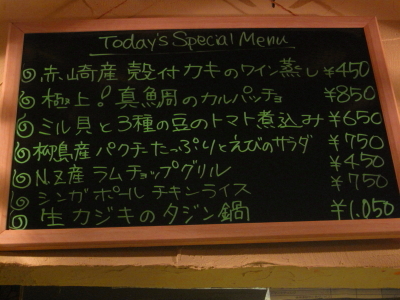 Today's Special Menu
赤崎産 殻付カキのワイン蒸し ¥450
極上!真鯛のカルパッチョ ¥850
ミル貝と3種の豆のトマト煮込み ¥650
産 パクチーたっぷりとえびのサラダ ¥750
N.Z産 ラムチョップグリル ¥450
シンガポール チキンライス ¥750
生カジキのタジン鍋 ¥1,050